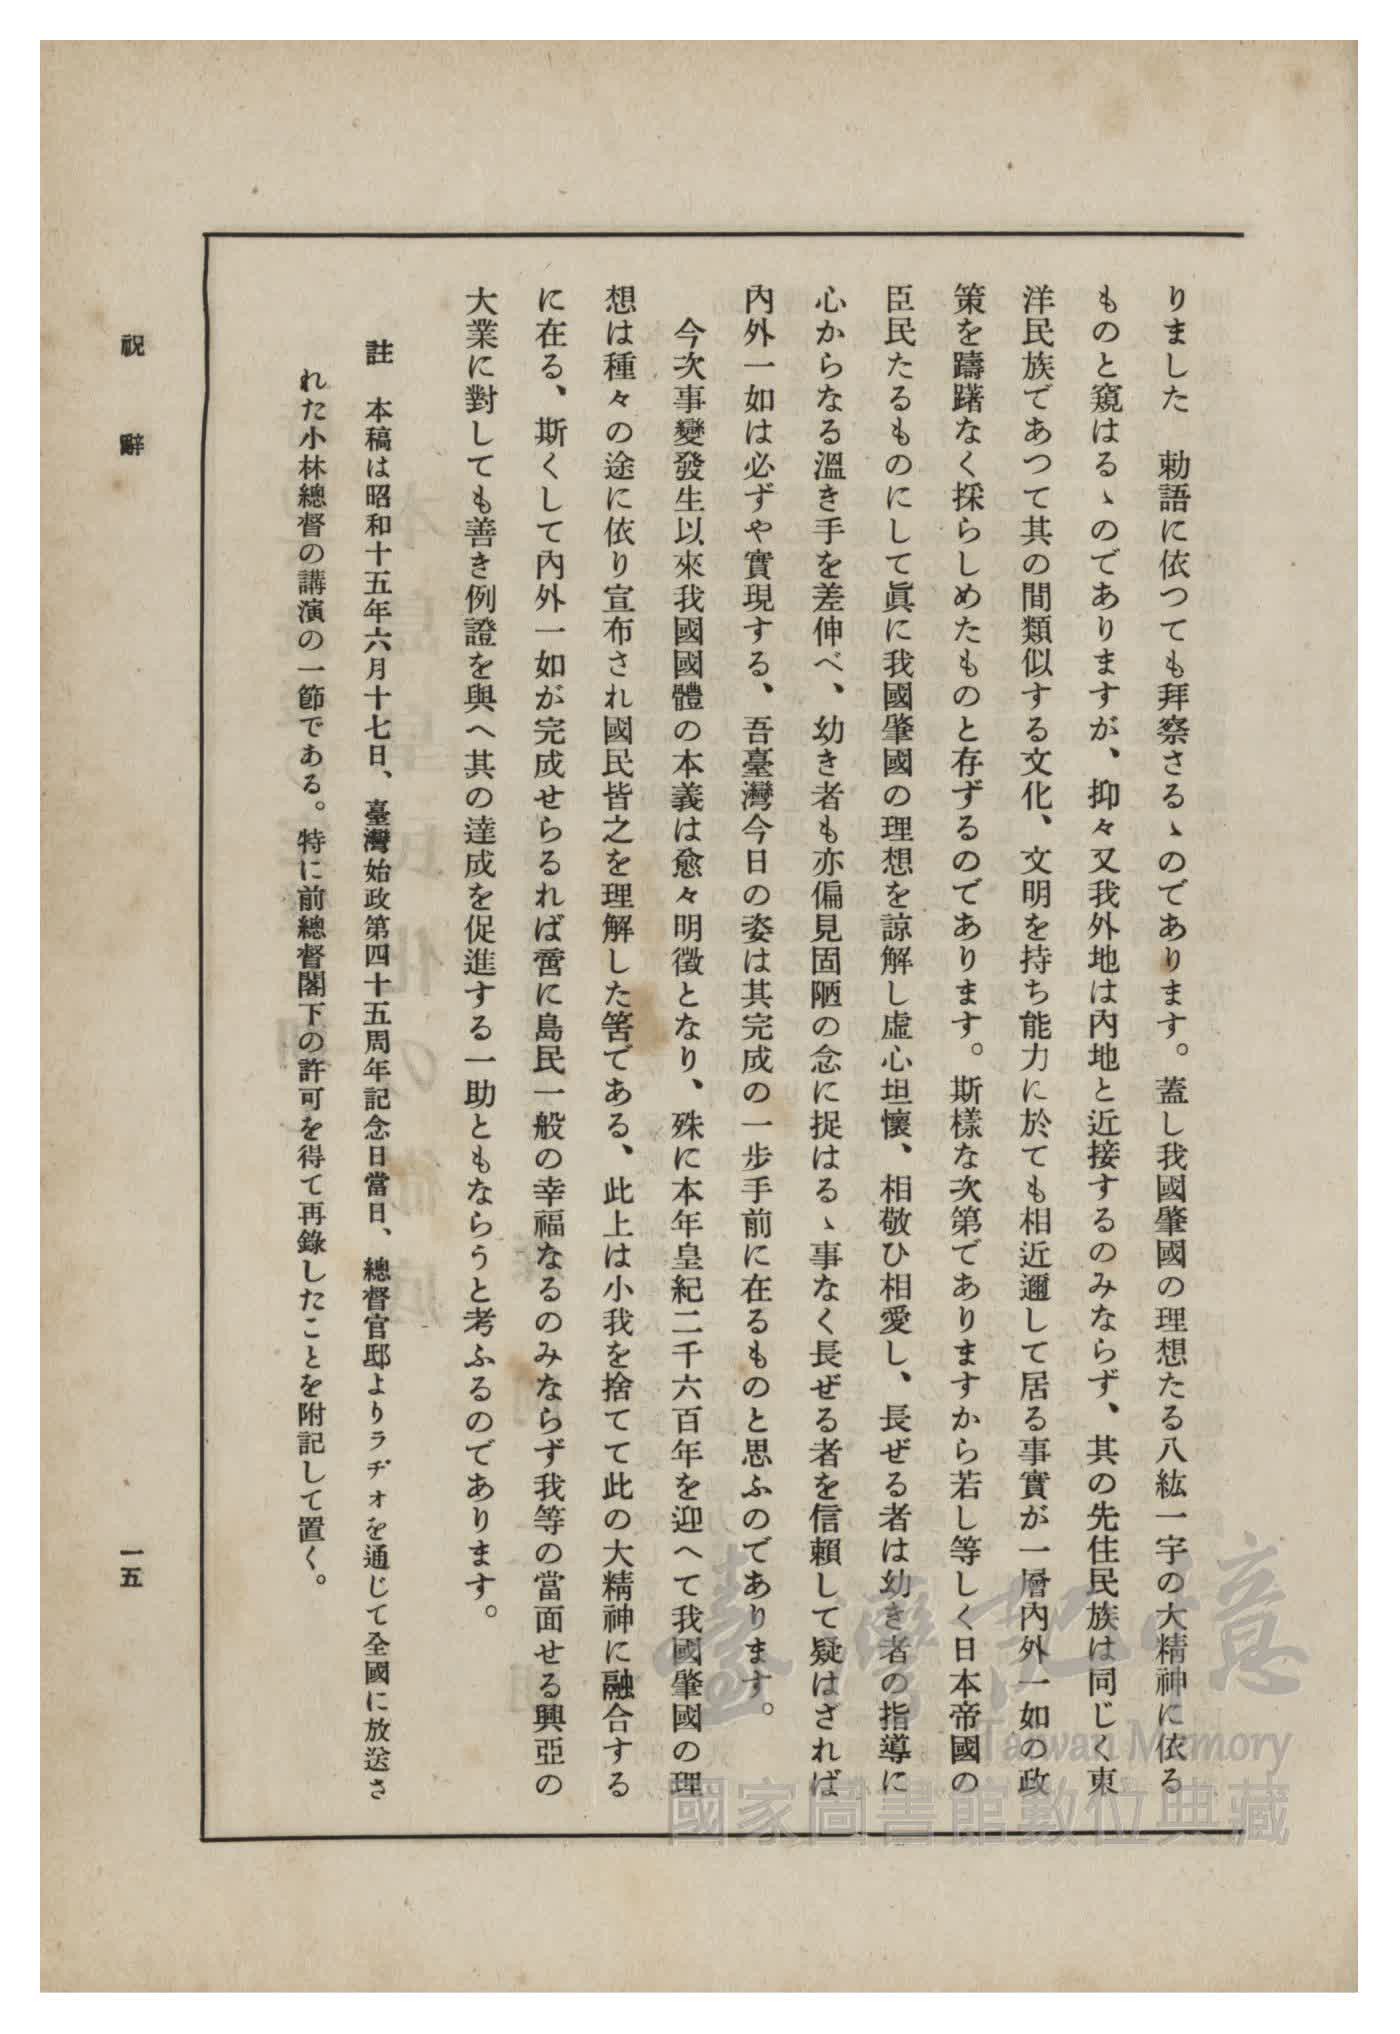 りました　勅語に依つても拜察さるゝのであります。蓋し我國肇國の理想たる八紘一宇の大精神に依る
ものと窺はるゝのでありますが、抑々又我外地は內地と近接するのみならず、其の先住民族は同じく東
洋民族であつて其の間類似する文化、文明を持ち能力に於ても相近邇して居る事實が一層內外一如の政
策を躊躇なく採らしめたものと存ずるのであります。斯樣な次第でありますから若し等しく日本帝國の
臣民たるものにして眞に我國肇國の理想を諒解し虛心坦懷、相敬ひ相愛し、長ぜる者は幼き者の指導に
心からなる溫き手を差伸べ、幼き者も亦偏見固陋の念に捉はるゝ事なく長ぜる者を信賴して疑はざれば
內外一如は必ずや實現する、吾臺灣今日の姿は其完成の一步手前に在るものと思ふのであります。
今次事變發生以來我國國體の本義は愈々明徵となり、殊に本年皇紀二千六百年を迎へて我國肇國の理
想は種々の途に依り宣布され國民皆之を理解した筈である、此上は小我を捨てて此の大精神に融合する
に在る、斯くして內外一如が完成せらるれば啻に島民一般の幸福なるのみならず我等の當面せる興亞の
大業に對しても善き例證を與へ其の達成を促進する一助ともならうと考ふるのであります。
註　本稿は昭和十五年六月十七日、臺灣始政第四十五周年記念日當日、總督官邸よりラヂオを通じて全國に放送さ
れた小林總督の講演の一節である。特に前總督閣下の許可を得て再錄したことを附記して置く。
祝辭
一五
臺灣記憶
Taiwan Memory
國家圖書館數位典藏